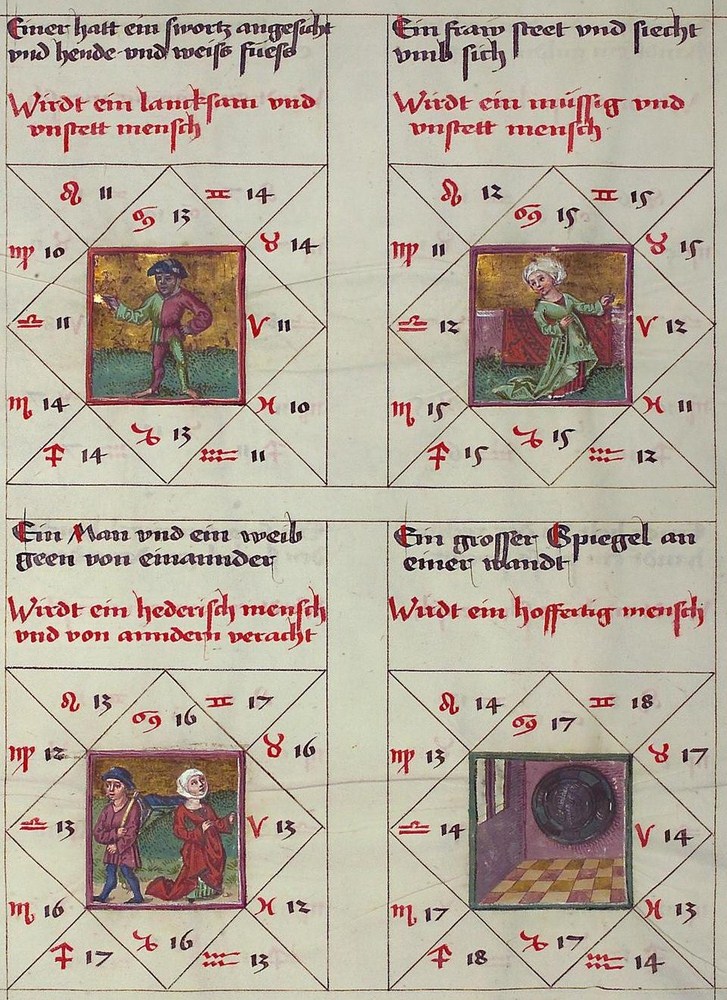 Einer hatt ein swortz angesicht
vnd hende vnd weiss fuess
Wirdt ein lancksam vnd
vnstett mensch
♌ 11 ♊ 14
♋ 13
♍ 10 ♉ 14
♎ 11 ♈ 11
♏ 14 ♓ 10
♑ 13
♐ 14 ♒ 11
Ein fraw steet vnd siecht
vmb sich
Wirdt ein müssig vnd
vnstett mensch
♌ 12 ♊ 15
♋ 15
♍ 11 ♉ 15
♎ 12 ♈ 12
♏ 15 ♓ 11
♑ 15
♐ 15 ♒ 12
Ein Man vnd ein weib
geen von einannder
Wirdt ein hederisch mensch
vnd von anndern veracht
♌ 13 ♊ 17
♋ 16
♍ 12 ♉ 16
♎ 13 ♈ 13
♏ 16 ♓ 12
♑ 16
♐ 17 ♒ 13
Ein grosser Spiegel an
einer wandt
Wirdt ein hoffertig mensch
♌ 14 ♊ 18
♋ 17
♍ 13 ♉ 17
♎ 14 ♈ 14
♏ 17 ♓ 13
♑ 17
♐ 18 ♒ 14